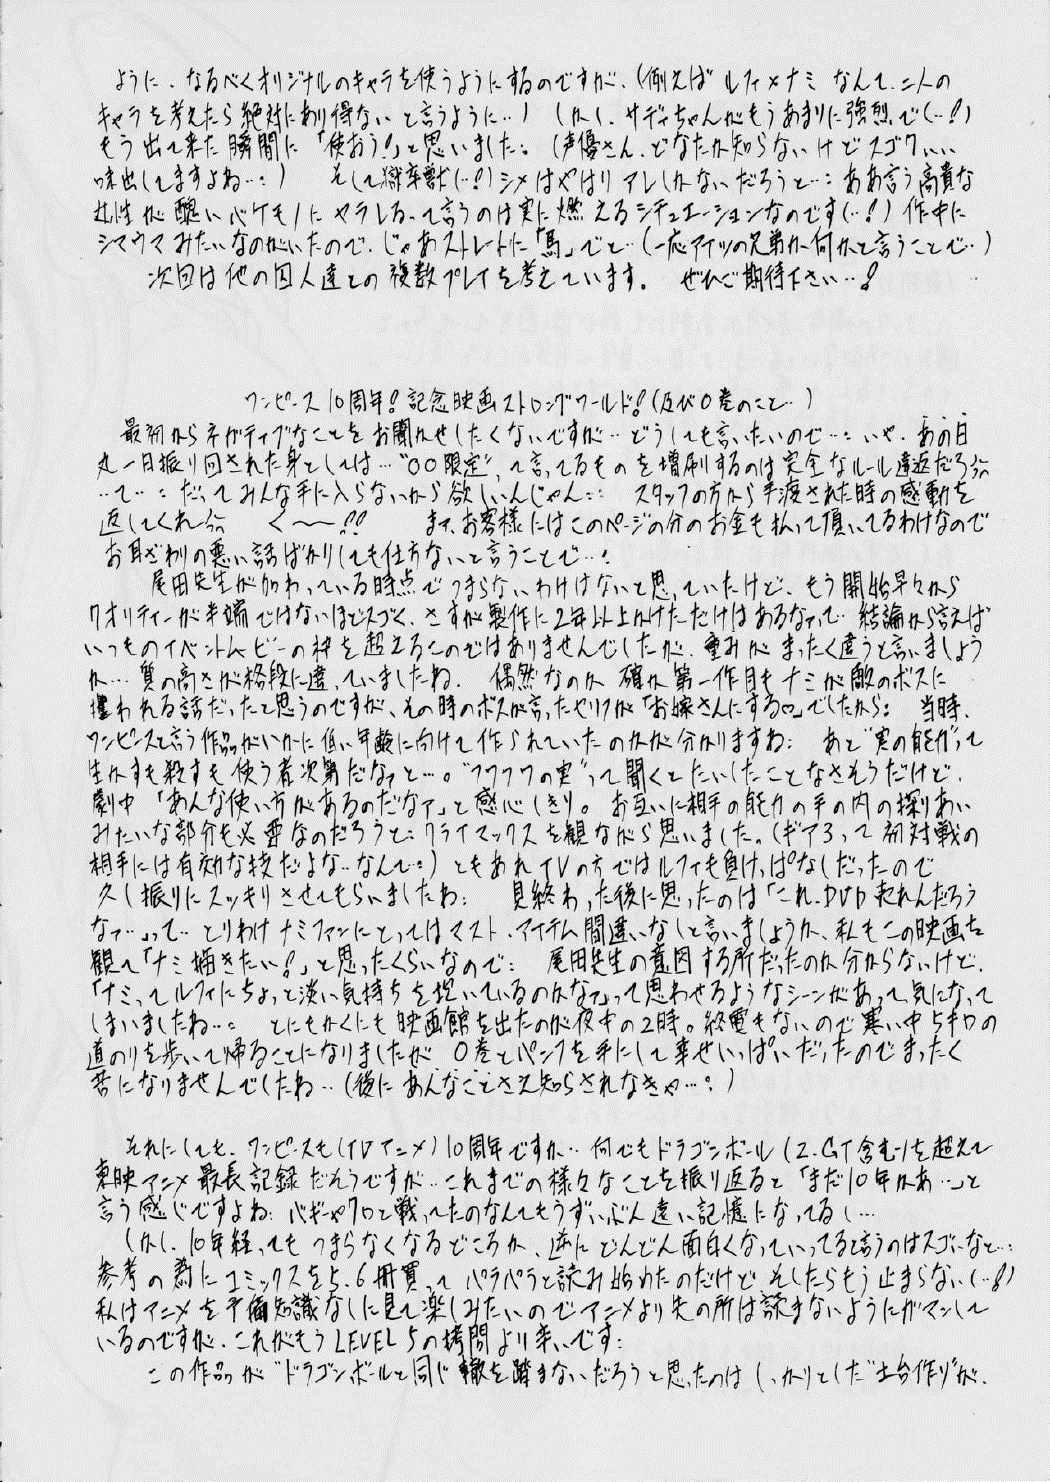 ように、なるべくオリジナルのキャラを使うようにするのですが、(例えば ルフィ×ナミ なんて、二人の
キャラを考えたら絶対にあり得ない と言うように‥) しかし、サディちゃんがもうあまりに強烈で(‥!)
もう出て来た瞬間に「使おう!」と思いました: (声優さん、どなたか知らないけどスゴクいい
味出してますよね‥:) そして獄卒獣(‥!)シメはやはり アレしかないだろうと‥: ああ言う高貴な
女性が醜いバケモノに ヤラレるって言うのは実に燃えるシチュエーションなのです(‥!) 作中に
シマウマみたいなのがいたので、じゃあストレートに「馬」でと‥(一応アイツの兄弟か何かと言うことで‥)
次回は他の囚人達との複数プレイを考えています。 ぜひご期待下さい‥!
ワンピース10周年! 記念映画ストロングワールド!(及び0巻のこと‥)
最初からネガティブなことをお聞かせしたくないですが‥どうしても言いたいので‥: いや、あの日
丸一日振り回された身としては‥"〇〇限定"って言ってるものを増刷するのは完全なルール違反だろ
‥って‥: だってみんな手に入らないから欲しいんじゃん:: スタッフの方から手渡された時の感動を
返してくれ く〜〜!! まあ、お客様にはこのページの分のお金も払って頂いてるわけなので
お耳ざわりの悪い話ばかりしても仕方ないと言うことで‥:
尾田先生が加わっている時点でつまらないわけはないと思っていたけど、もう開始早々から
クオリティーが半端ではないほどスゴく、さすが製作に2年以上かけただけはあるなァって‥ 結論から言えば
いつものイベントムービーの枠を超えるものではありませんでしたが、重みがまったく違うと言いましょう
か‥ 質の高さが格段に違っていましたね。 偶然なのか 確か第一作目もナミが敵のボスに
攫われる話だったと思うのですが、その時のボスが言ったセリフが「お嫁さんにする♡」でしたから: 当時、
ワンピースと言う作品がいかに低い年齢に向けて作られていたのかが分かりますね: あと"実の能力"って
生かすも殺すも使う者次第だなァと‥。"フワフワの実"って聞くとたいしたことなさそうだけど、
劇中「あんな使い方があるのだなァ」と感心しきり。お互いに相手の能力の手の内の探りあい
みたいな部分も必要なのだろうと: クライマックスを観ながら思いました。(ギア3って初対戦の
相手には有効な技だよな‥なんて:) ともあれTVの方ではルフィも負けっぱなしだったので
久し振りにスッキリさせてもらいましたね: 見終わった後に思ったのは「これ、DVD売れんだろう
なァ‥」って‥ とりわけナミファンにとってはマスト・アイテム間違いなしと言いましょうか、私もこの映画を
観て「ナミ描きたい!」と思ったくらいなので: 尾田先生の意図する所だったのか分からないけど、
「ナミってルフィにちょっと淡い気持ちを抱いているのかなァ」って思わせるようなシーンがあって、気になって
しまいましたね‥: とにもかくにも映画館を出たのが夜中の2時。終電もないので寒い中5キロの
道のりを歩いて帰ることになりましたが 0巻とパンフを手にして幸せいっぱいだったのでまったく
苦になりませんでしたね‥(後にあんなことさえ知らされなきゃ‥:)
それにしても、ワンピースも(TVアニメ)10周年ですか‥何でもドラゴンボール(Z、GT含む)を超えて
東映アニメ最長記録だそうですが‥これまでの様々なことを振り返ると「まだ10年かあ‥」と
言う感じですよね: バギーやクロと戦ってたのなんてもうずいぶん遠い記憶になってるし‥
しかし、10年経っても つまらなくなるどころか、逆にどんどん面白くなっていってると言うのはスゴいなと‥:
参考の為にコミックスを5、6冊買って パラパラと読み始めたのだけど、そしたらもう止まらない(‥!)
私はアニメを予備知識なしに見て楽しみたいのでアニメより先の所は読まないようにガマンして
いるのですが、これがもうLEVEL5の拷問より辛いです:
この作品が"ドラゴンボール"と同じ轍を踏まないだろうと思ったのはしっかりとした"土台作り"が、